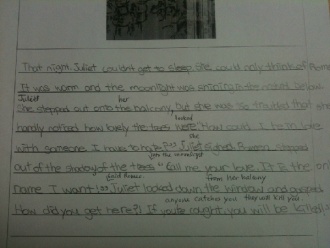 That night, Juliet couldn't get to sleep. She could only think of Rome
It was warm and the moonlight was shining in the
Juliet her
She stepped out onto the balcony, but she was so troubled that she
looked
hardly noticed how lovely the trees were. "How could I be in love
she
with someone I have to hate?" Juliet sighed. Romeo stepped
into the moonlight
out of the shadow of the trees "Call me your love. It is the only
said Romeo. from her balcony
name I want" Juliet looked down the window and
anyone catches you they will kill you
How did you get here?! If you're caught, you will be killed